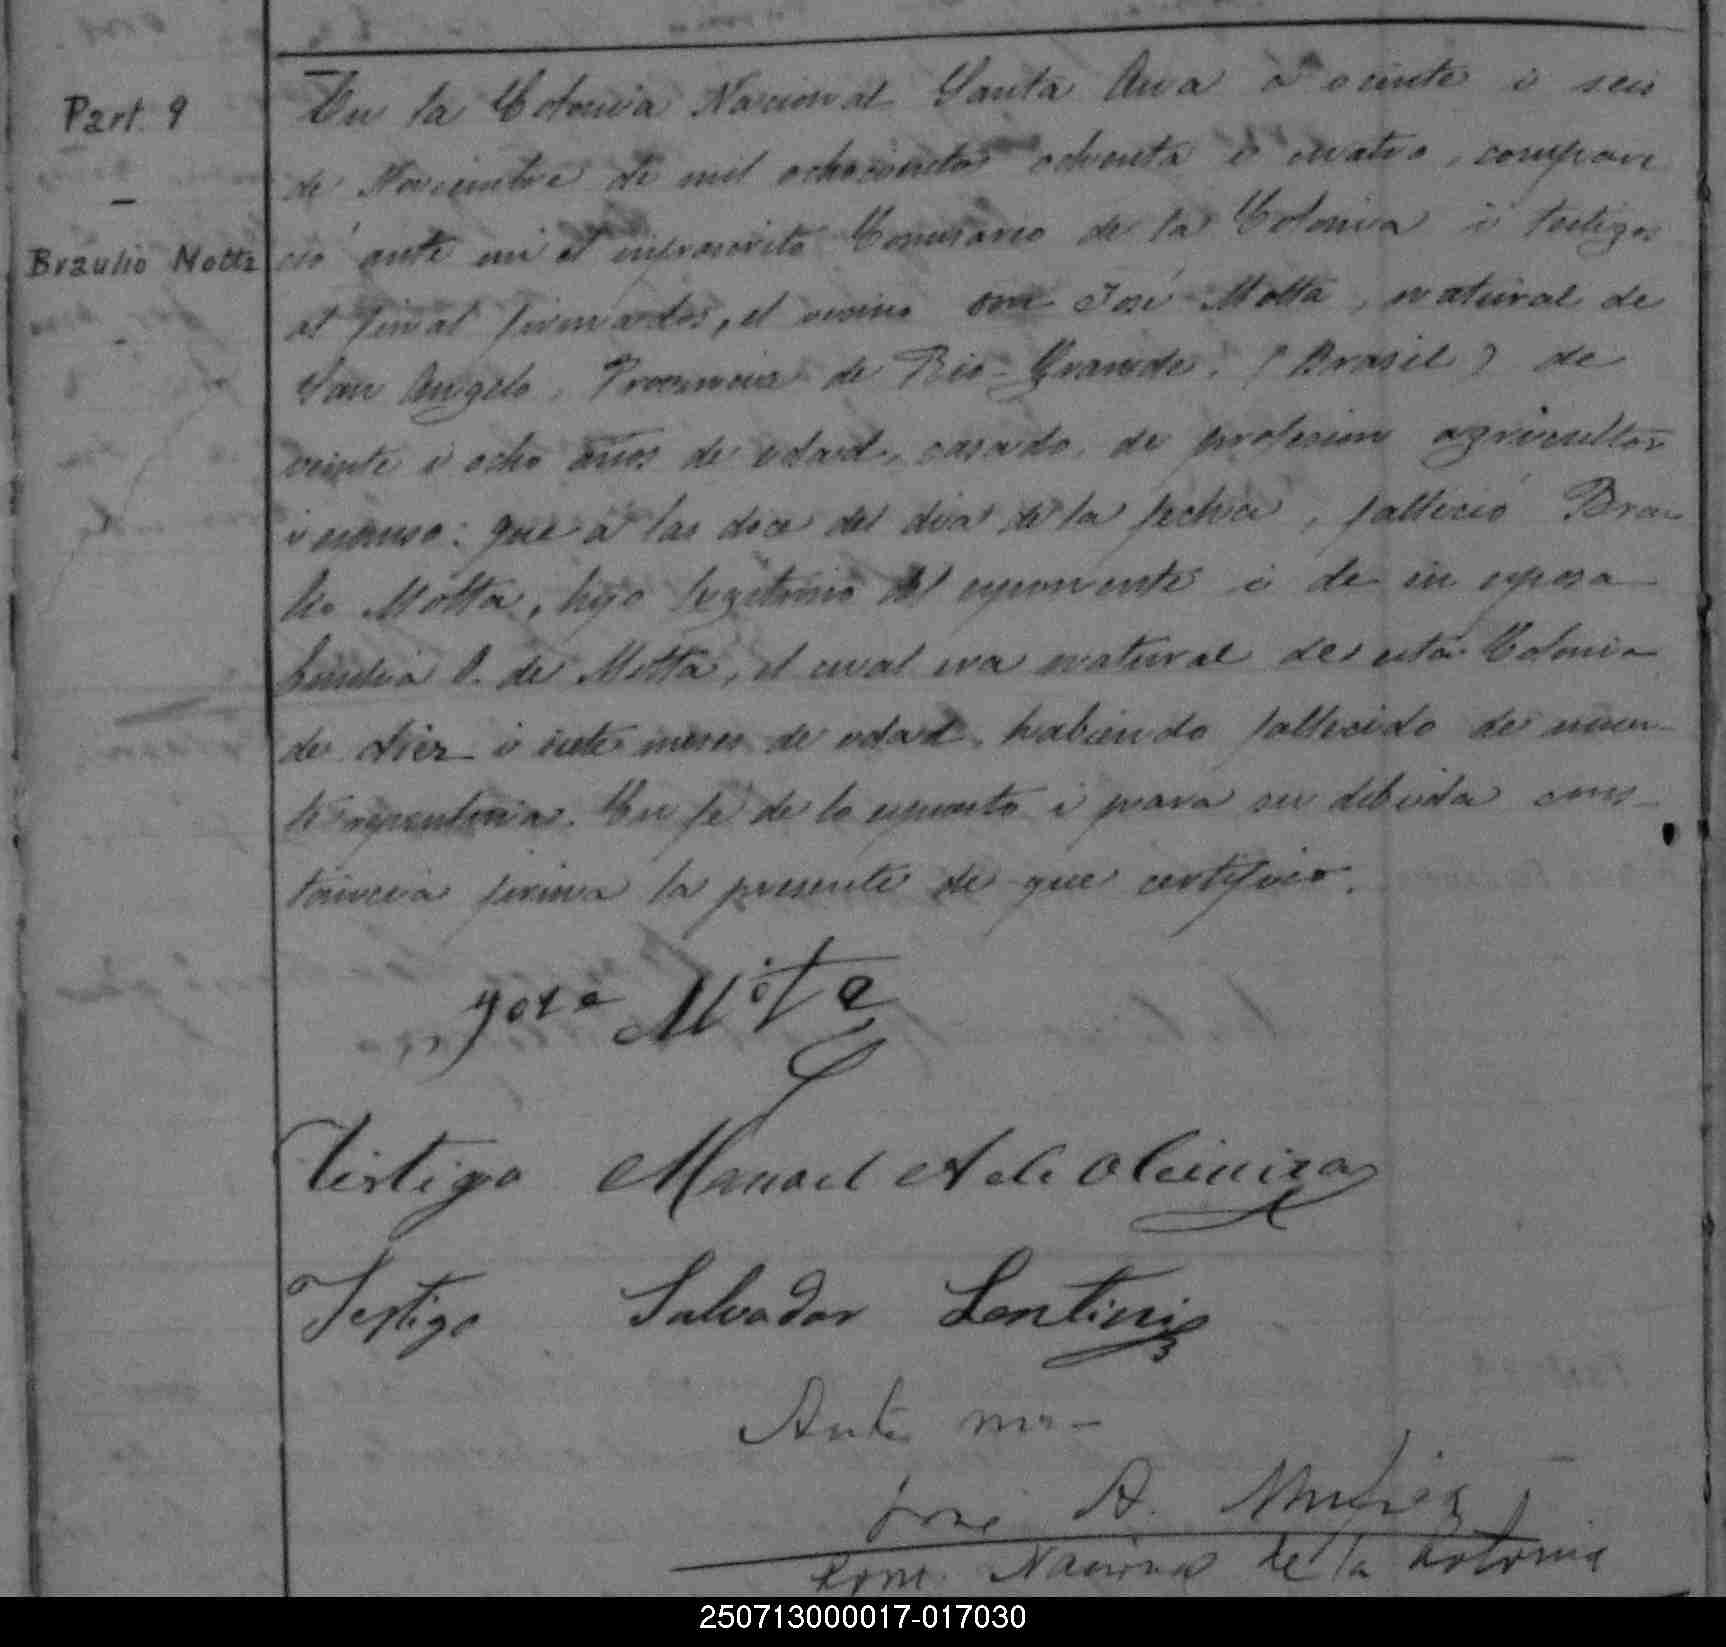 Part. 9
Braulio Motta
En la Colonia Nacional Santa Ana a veinte i seis
de Noviembre de mil ochocientos ochenta i cuatro, compare
ció ante mi el infrascrito Comisario de la Colonia i testigos
al final firmados, el vecino don José Motta, natural de
San Angelo, Provincia de Rio-Grande, (Brasil) de
veinte i ocho años de edad, casado, de profesion agricultor
i espuso: que a las doce del dia de la fecha, falleció Brau
lio Motta, hijo legitimo del esponente i de su esposa
O. de Motta, el cual era natural de esta Colonia
de diez i siete meses de edad, habiendo fallecido de muer-
te repentina. En fé de lo espuesto i para su debida cons-
tancia firma la presente de que certifico.
José Mota
Testigo Manoel A de Oliveira
Testigo Salvador Lentini
Ante mi-
José A.
Com. Nacional de la Colonia
250713000017-017030